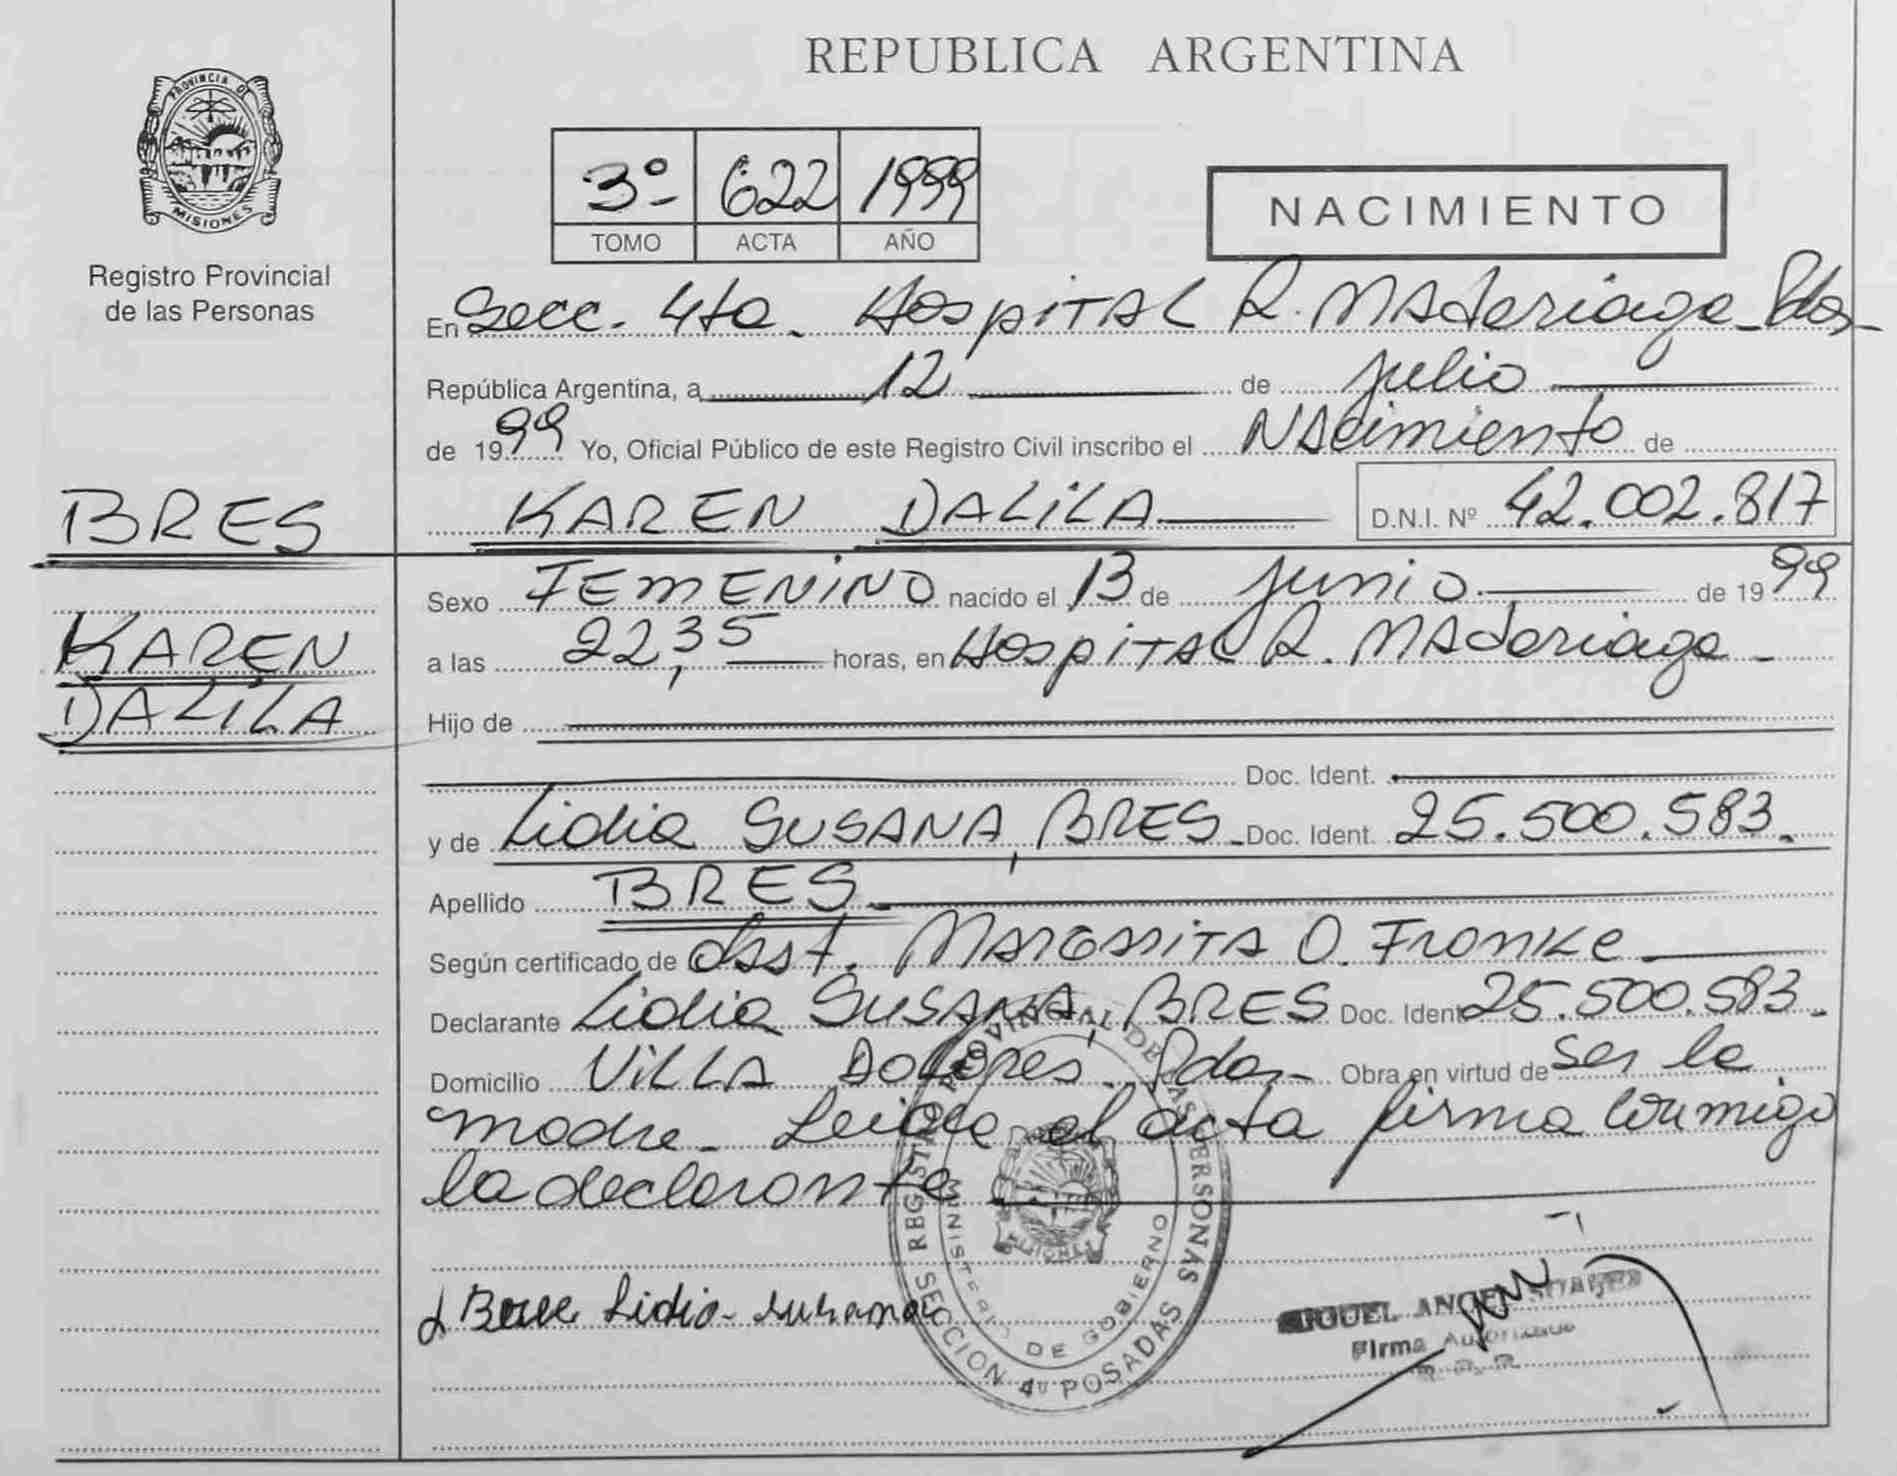 REPUBLICA ARGENTINA
PROVINCIA DE
MISIONES
Registro Provincial
de las Personas
3º 622 1999
TOMO ACTA AÑO
NACIMIENTO
En Secc. 4ta. Hospital R. Madariaga - Pdas -
República Argentina, a 12 de julio
de 1999 Yo, Oficial Público de este Registro Civil inscribo el Nacimiento de
BRES
KAREN DALILA D.N.I. Nº 42.002.817
Sexo FEMENINO nacido el 13 de junio de 1999
KAREN
a las 22,35 horas, en Hospital R. Madariaga -
DALILA
Hijo de
Doc. Ident.
y de Lidia SUSANA, BRES - Doc. Ident. 25.500.583.
Apellido BRES
Según certificado de Obst. MARGARITA O. FRONKE
Declarante Lidia SUSANA, BRES Doc. Ident. 25.500.583.
Domicilio VILLA Dolores. Pdas - Obra en virtud de Ser la
madre - Leida el acta firma conmigo
la declarante
REGISTRO PROVINCIAL DE LAS PERSONAS
MINISTERIO DE GOBIERNO
SECCION 4ta POSADAS
MISIONES
Lidia - Susana
MIGUEL ANGEL SUAREZ
Firma Autorizada